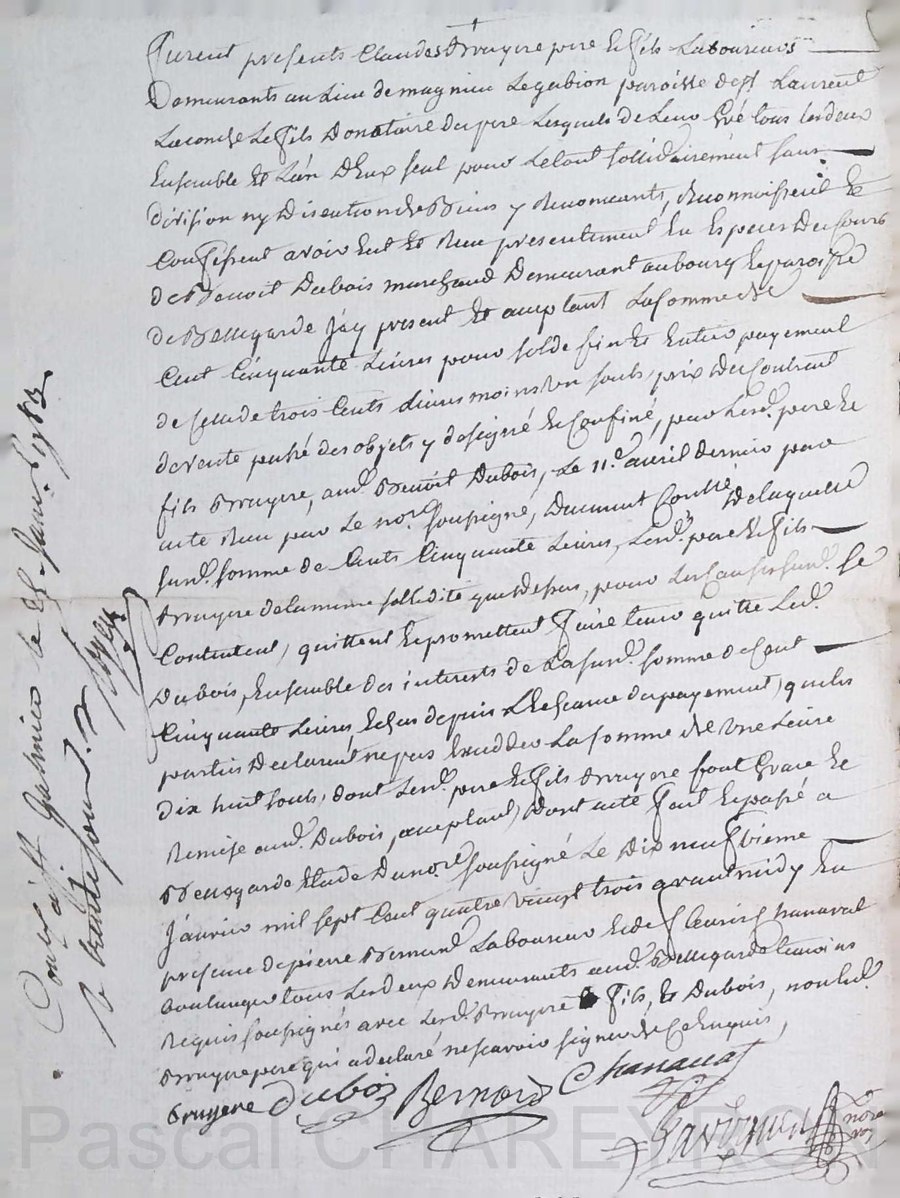 furent presents Claudes Bruyere pere et fils Laboureurs
Demeurants au Lieu de magnieu Legabion paroisse de St Laurent
Laconche Le fils Donataire du pere Lesquels de Leur Gré tous les deux
Ensemble et L'un D'Eux seul pour Le tout sollidairement sans
division ny Discution de Biens y Renonceants, Reconnoissent et
Confessent avoir Eut et Reçu presentement En Especes De Cours
de Benoit Dubois marchand Demeurant au bourg et paroisse
de Bellegarde J'cy present et acceptant La somme de
Cent Cinquante Livres pour solde fin et Entier payement
de Celle de trois Cents Livres moins un souls, prix De Contrat
de vente passé des objets y désigné et Confiné, par Lesd. pere et
fils Bruyere, aud. Benoit Dubois, Le 11e. avril dernier par
acte Reçu par Le nore. soussigné, Duement Contlé De laquelle
susd. somme de Cents Cinquante Livres, Lesd. pere et fils
Bruyere de la meme sollidité que Dessus, pour Les Causes susd. se
Contentent, quittent et promettent faire tenir quitte Led.
Dubois, Ensemble des interets de La susd. somme de Cent
Cinquante Livres Echus depuis L'Echeance du payement, que les
parties Declarent ne pas Exceder La somme de une Livre
Dix huit souls, dont Lesd. pere et fils Bruyere font Grace et
Remise aud. Dubois, acceptant, Dont acte fait et passé a
Bellegarde Etude Du nore. soussigné Le Dix neufvieme
Janvier mil sept Cent quatre vingt trois avant midy En
presence de pierre Bernard Laboureur et de Chanavat
Boulanger tous Les deux Demeurants aud. Bellegarde temoins
Requis soussignés avec Lesd. Bruyere fils, et Dubois, non led.
Bruyere pere qui a declaré ne scavoir signer de Ce Enquis,
Bruyere Dubois Bernard Chanavat
nore
Conlé à St Galmier le 25 Janv. 1783
R trente sous
Pascal CHAREYRON